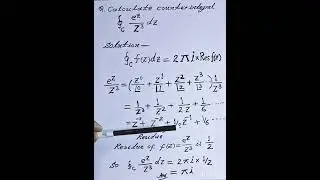 Q. Calculate counter integral
∮c e^z/z^3 dz
Solution —
∮c f(z) dz = 2πi × Res f(z)
e^z/z^3 = (z^0/⌊0 + z^1/⌊1 + z^2/⌊2 + z^3/⌊3 ...) 1/z^3
= 1/z^3 + 1/z^2 + 1/2z + 1/6 ......
= z^-3 + z^-2 + 1/2 z^-1 + 1/6 ...
Residue
Residue of f(z) = e^z/z^3 is 1/2
So ∮c e^z/z^3 dz = 2πi × 1/2
= πi